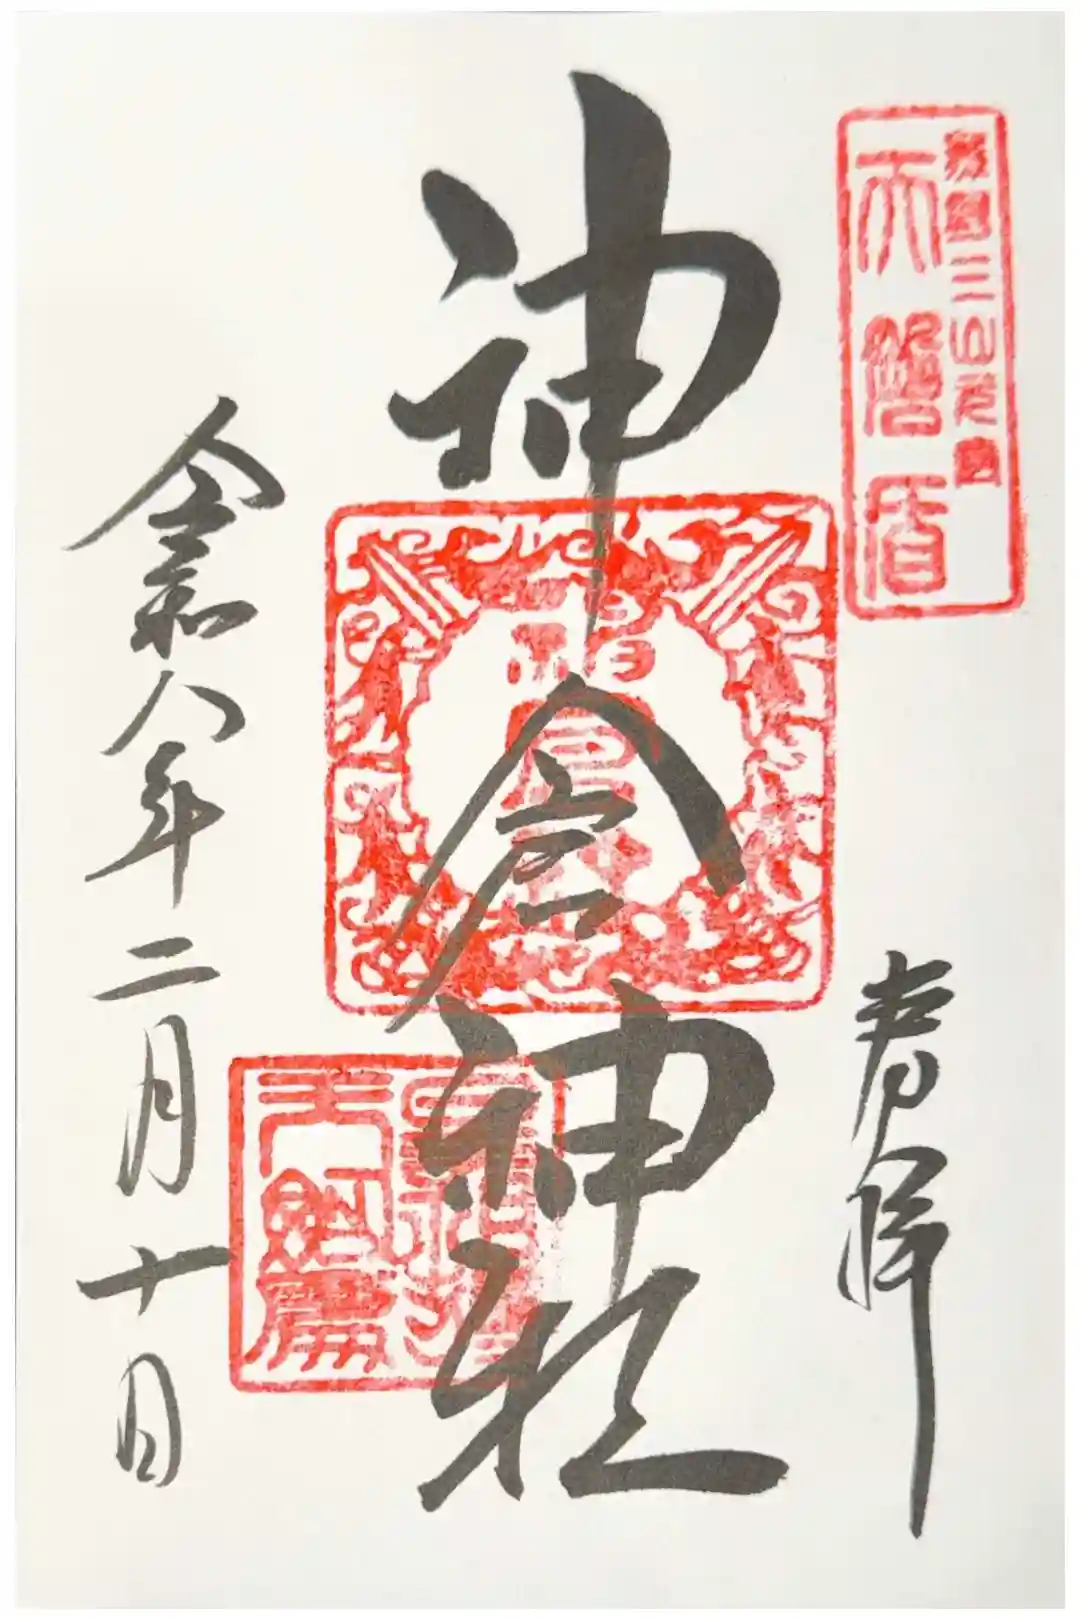 熊野三山元宮
天磐盾
奉拝
神倉神社
令和八年二月十日